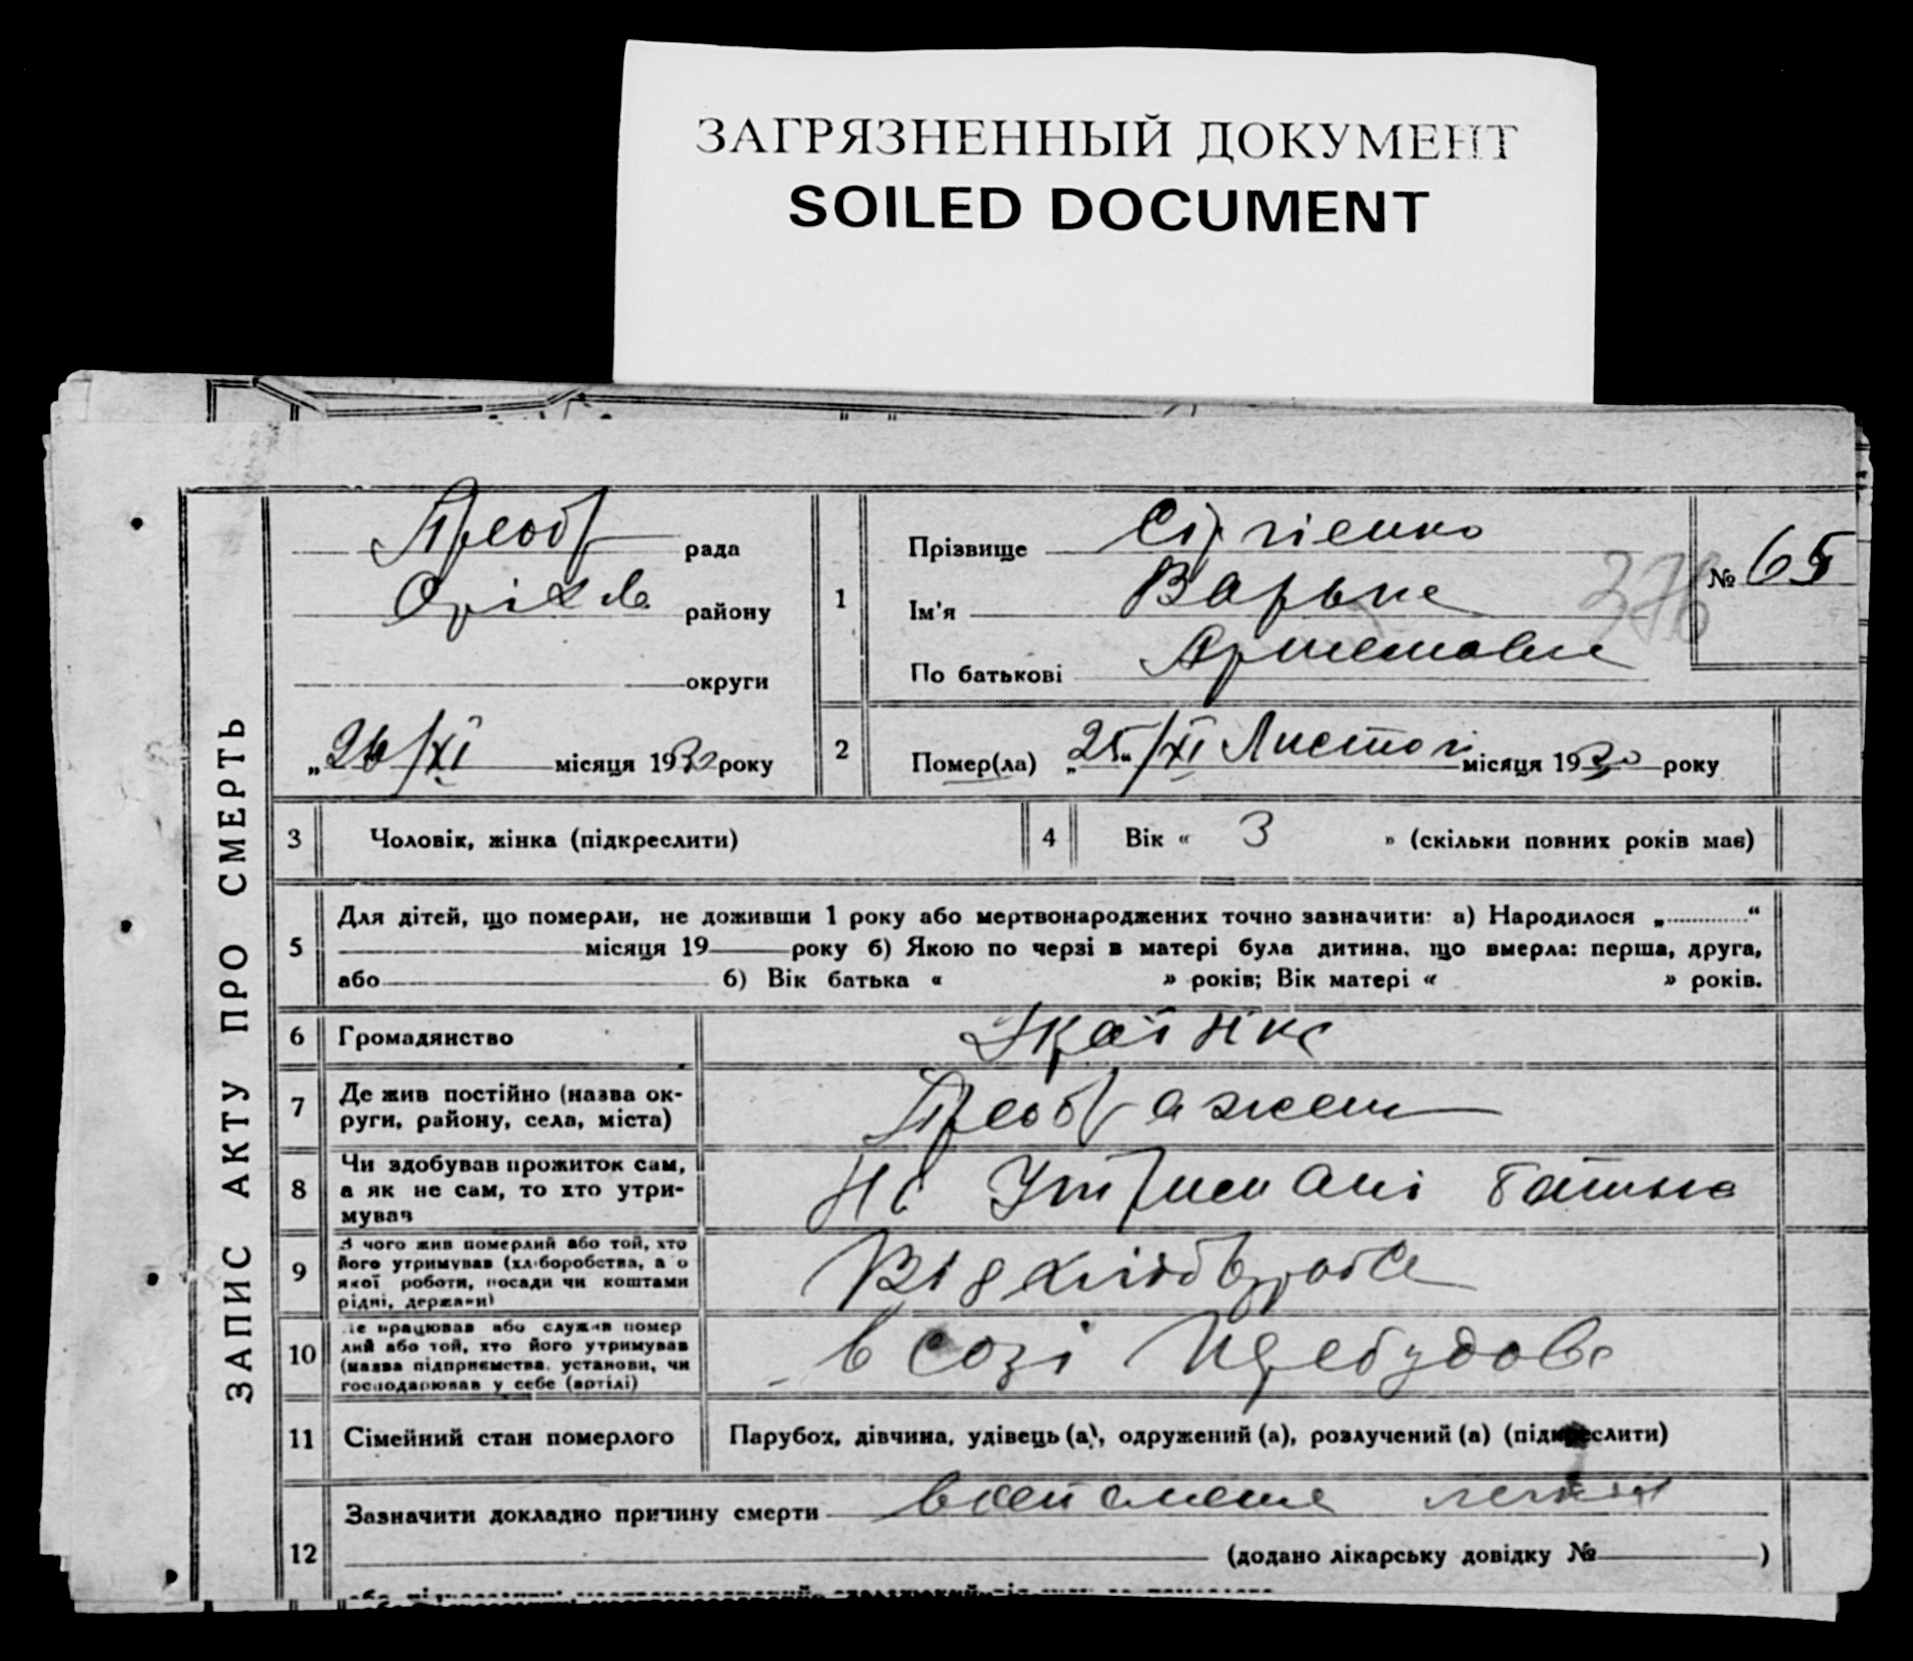 ЗАГРЯЗНЕННЫЙ ДОКУМЕНТ
SOILED DOCUMENT
ЗАПИС АКТУ ПРО СМЕРТЬ
Преобр рада
Оріхів району
округи
„26/XI місяця 1930 року
1
Прізвище Сергієнко
Ім'я Варька
По батькові
№ 65
376
2
Помер(ла) „25“/XI Листоп місяця 1930 року
3 Чоловік, жінка (підкреслити)
4 Вік « 3 » (скільки повних років має)
5
Для дітей, що померли, не доживши 1 року або мертвонароджених точно зазначити: а) Народилося „............“
місяця 19 року б) Якою по черзі в матері була дитина, що вмерла: перша, друга,
або б) Вік батька « » років; Вік матері « » років.
6 Громадянство Украінка
7
Де жив постійно (назва ок-
руги, району, села, міста)
Преображен
8
Чи здобував прожиток сам,
а як не сам, то хто утри-
мував
На Утриманні батька
9
З чого жив померлий або той, хто
його утримував (хліборобства, а о
якої роботи, посади чи коштами
рідні, держави)
Від хліборобства
10
Де працював або служив помер
лий або той, хто його утримував
(назва підприємства, установи, чи
господарював у себе (артілі)
в созі Перебудова
11 Сімейний стан померлого
Парубок, дівчина, удівець (а), одружений (а), розлучений (а) (підкреслити)
12
Зазначити докладно причину смерти воспаление легких
(додано лікарську довідку № )